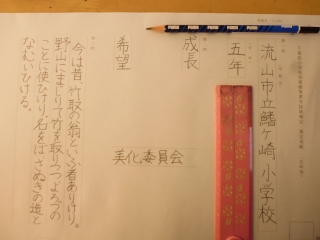 流山市立鰭ヶ崎小学校
五年
成長
希望
美化委員会
今は昔竹取の翁といふ者ありけり。
野山にまじりて竹を取りつつよろづの
ことに使ひけり。名をば、さぬきの造と
なむいひける。